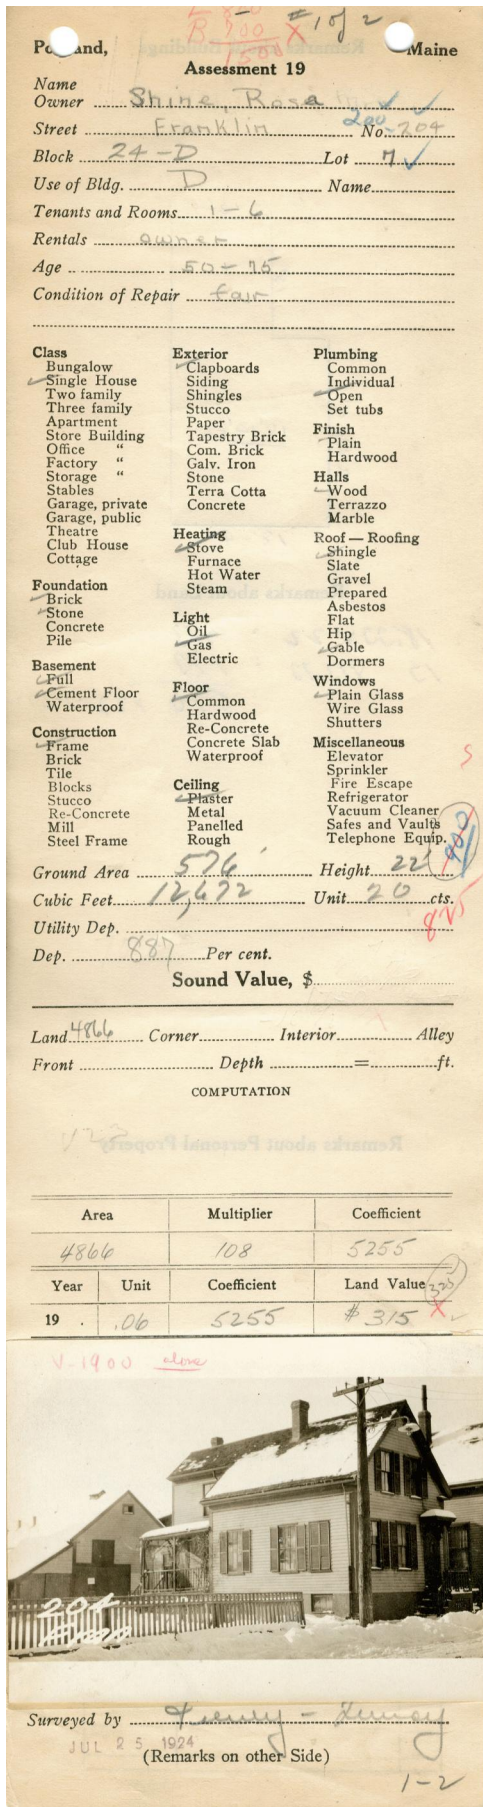 #1 of 2
B 900 X
1500
Portland, Maine
Assessment 19
Name
Owner Shine, Rosa
Street Franklin No. 200-204
Block 24-D Lot 7
Use of Bldg. D Name
Tenants and Rooms 1-6
Rentals owner
Age 50-75
Condition of Repair fair
Class
Bungalow
Single House
Two family
Three family
Apartment
Store Building
Office "
Factory "
Storage "
Stables
Garage, private
Garage, public
Theatre
Club House
Cottage
Foundation
Brick
Stone
Concrete
Pile
Basement
Full
Cement Floor
Waterproof
Construction
Frame
Brick
Tile
Blocks
Stucco
Re-Concrete
Mill
Steel Frame
Exterior
Clapboards
Siding
Shingles
Stucco
Paper
Tapestry Brick
Com. Brick
Galv. Iron
Stone
Terra Cotta
Concrete
Heating
Stove
Furnace
Hot Water
Steam
Light
Oil
Gas
Electric
Floor
Common
Hardwood
Re-Concrete
Concrete Slab
Waterproof
Ceiling
Plaster
Metal
Panelled
Rough
Plumbing
Common
Individual
Open
Set tubs
Finish
Plain
Hardwood
Halls
Wood
Terrazzo
Marble
Roof — Roofing
Shingle
Slate
Gravel
Prepared
Asbestos
Flat
Hip
Gable
Dormers
Windows
Plain Glass
Wire Glass
Shutters
Miscellaneous
Elevator
Sprinkler
Fire Escape
Refrigerator
Vacuum Cleaner
Safes and Vaults
Telephone Equip.
S
900
Ground Area 576 Height 22'
Cubic Feet 12,672 Unit 20 cts.
825
Utility Dep.
Dep. 887 Per cent.
Sound Value, $
Land 4866 Corner Interior Alley
Front Depth = ft.
COMPUTATION
Remarks about Personal Property
Area Multiplier Coefficient
4866 108 5255
Year Unit Coefficient Land Value 325
19 . .06 5255 $315 X
V-1900 alone
204
Fran
Surveyed by
JUL 25 1924
(Remarks on other Side)
1-2